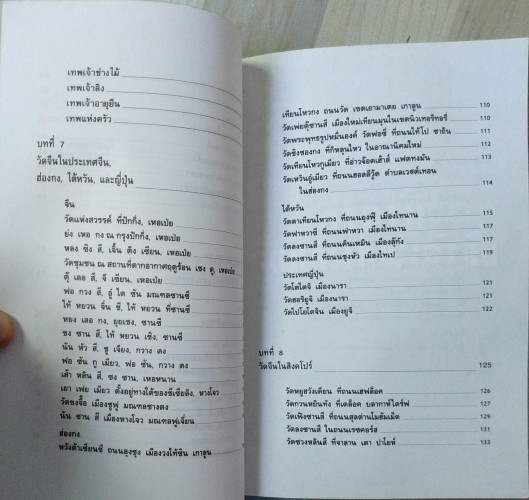 เทพเจ้าช่างไม้
เทพเจ้าลิง
เทพเจ้าอายุยืน
เทพแห่งครัว
บทที่ 7
วัดจีนในประเทศจีน,
ฮ่องกง, ไต้หวัน, และญี่ปุ่น
จีน
วัดแห่งสวรรค์ ที่ปักกิ่ง, เหอเป่ย
ย่ง เหอ กง ณ กรุงปักกิ่ง, เหอเป่ย
หลง ชิง สี, เจิ้น ติง เซียน, เหอเป่ย
วัดชุมชน ณ สถานที่ตากอากาศฤดูร้อน เชง ตู, เหอเป่ย
ตู๊ เลอ สี, จี เซียน, เหอเป่ย
ฟอ กวง สี, อู่ ไต ซัน มณฑลชานซี
ไห้ หยวน จิ่น ซี, ไห้ หยวน ที่ชานซี
หยง เลอ กง, ยุยเซง, ชานซี
ชง ซาน สี, ไห้ หยวน เซิง, ชานซี
นัน หัว สี, ชู เจียง, กวาง ตง
ฟอ ซัน กู เมียว, ฟอ ซัน, กวาง ตง
เส้า หลิน สี, ซง ซาน, เหอหนาน
เยา เฟย เมียว ตั้งอยู่ทางใต้ของชีเซียลิง, หางโจว
วัดขงจื้อ เมืองชูฟู มณฑลชางตง
นัน ซาน สี เมืองหางโจว มณฑลฟูเจี้ยน
ฮ่องกง
หวังต้าเซียนซี ถนนลุงชุง เมืองวงไท้ซิน เกาลูน
เทียนโหวกง ถนนวัด เขตเยามาเตย เกาลูน 110
วัดเพ่ยตู้ซานสี เมืองใหม่เทียนมุนในเขตนิวเทอริทอรี่ 110
วัดพระพุทธรูปหมื่นองค์ วัดฟอซี ที่ถนนไท้โป ชาถิน 111
วัดชิงซองกง ที่กิหลุนไหว ในอาณานิคมใหม่ 112
วัดเทียนโหวกูเมียว ที่อ่าวจ๊อสเฮ้าส์ แฟตทงมัน 113
วัดเหวินอู่เมียว ที่ถนนฮอลลีวู้ด ตำบลเวสต์เทอน
ในฮ่องกง 114
ไต้หวัน
วัดตาเทียนโหวกง ที่ถนนยุงฟู๊ เมืองไทนาน 115
วัดฟาหวาซี ที่ถนนฟาหวา เมืองไทนาน 117
วัดลงซานสี ที่ถนนคินเหมิน เมืองลู้กัง 117
วัดลงซานสี ที่ถนนชุงหัว เมืองไทเป 119
ประเทศญี่ปุ่น
วัดโตไดจิ เมืองนารา 121
วัดฮอริยูจิ เมืองนารา 121
วัดไปโยโดจิน เมืองยูจิ 122
บทที่ 8
วัดจีนในสิงคโปร์ 125
วัดหยูฮวังเตียน ที่ถนนเฮฟล็อค 126
วัดกวนหยินทัง ที่เตล็อค บลากาห์ไดร์ฟ 127
วัดเฟิงซานสี ที่ถนนสุลต่านโมฮัมเม็ด 127
วัดลงซานสี ในถนนเรซคอร์ส 131
วัดซวงหลินสี ที่จาลาน เตา ปาโยห์ 133